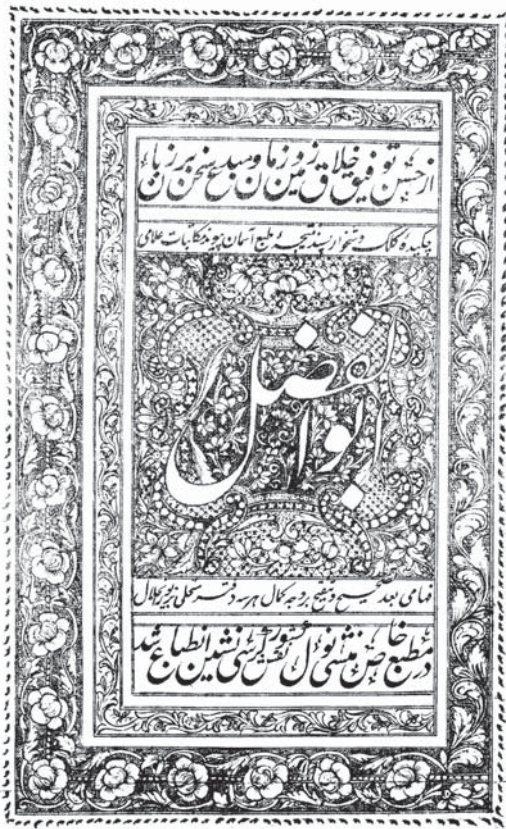 از حسن توفیق خلاق زمین و زمان و مبدع سخن بر زبان
چکیده کلک نتیجه طبع آسمان پیوند مکاتبات علامی
ابوالفضل
فهامی بعد تصحیح و تنقیح بدرجه کمال هر سه دفتر محلی بزیور جلال
در مطبع خاص منشی نول کشور کرسی نشین انطباع شد